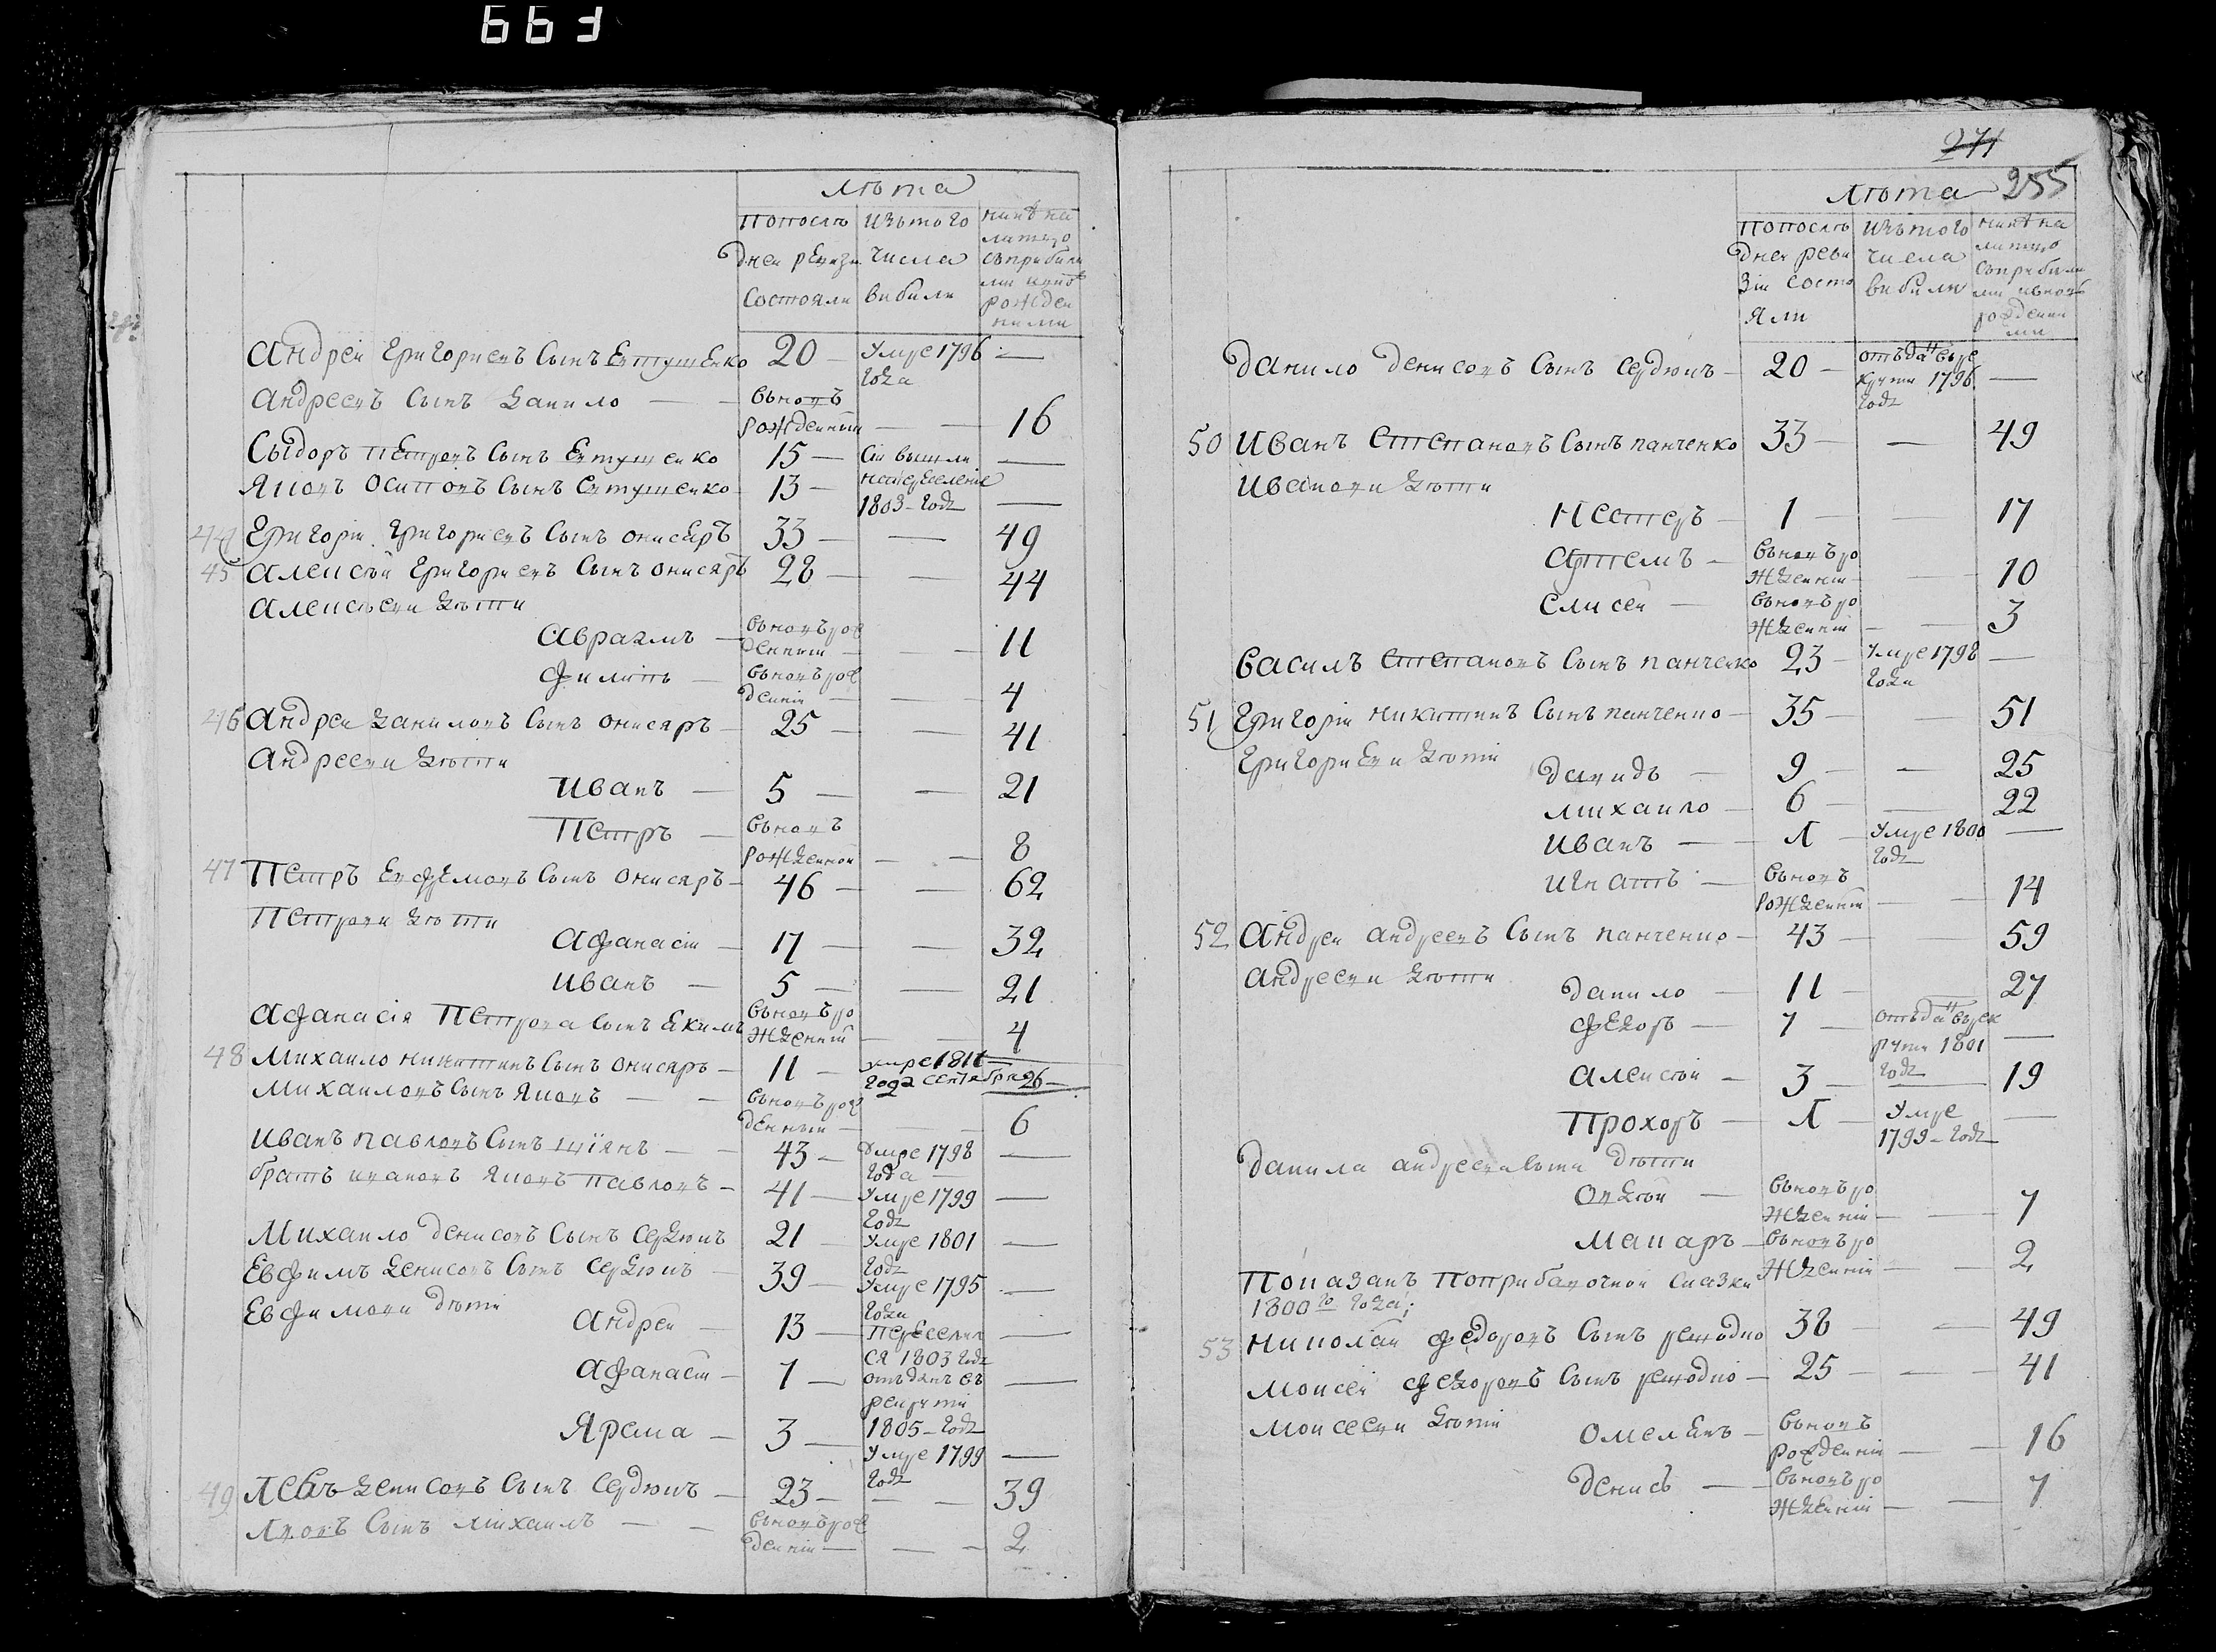 663
лѣта
Попослѣ дней ревизи состояли
изътого числа вибили
нинѣ на лицо съприбили ми вновѣ рожден ними
Андрей Григориевъ Сынъ Евтушенко 20 — Умре 1796 года —
Андреевъ Сынъ Данило — — вьновъ рожденній — — 16
Сыдоръ Петровъ Сынъ Евтушенко 15 — Сіи вышли —
Яковъ Осиповъ Сынъ Евтушенко 13 — 1803 — годȣ —
44 Григорій Григориевъ Сынъ Онисяръ 33 — — 49
45 Алексѣй Григориевъ Сынъ Онисяръ 28 — — 44
Алексѣеви дѣти
Авраамъ — вьновъ рож денній — — 11
Филипъ — вьновъ рож деній — — 4
46 Андрей Даниловъ Сынъ Онисяръ — 25 — — 41
Андрееви дѣти
Иванъ — 5 — — 21
Петръ — вьновъ рожденной — — 8
47 Петръ Евфемовъ Сынъ Онисяръ — 46 — — 62
Петрови дѣти
Афанасій — 17 — — 32
Иванъ — 5 — — 21
Афанасія Петрова сынъ Якимъ вьновъ ро жденній — — 4
48 Михаило Никитинъ Сынъ Онисяръ — 11 — умре 1811 года сентября 26 —
Михаиловъ Сынъ Яковъ — — вьновъ рож денный — — 6
Иванъ Павловъ Сынъ — — 43 — Умре 1798 года —
братъ ивановъ Яковъ Павловъ — 41 — Умре 1799 годȣ —
Михаило Денисовъ Сынъ Сердюкъ 21 — Умре 1801 годȣ —
Евфимъ Денисовъ Сынъ Сердюкъ — 39 — Умре 1795 года —
Евфимови дѣти
Андрей — 13 — Переселил ся 1803 годȣ —
Афанасій — 7 — отъданъ въ рекрути 1805 — годȣ —
Ярема — 3 — Умре 1799 годȣ —
49 Левъ Денисовъ Сынъ Сердюкъ — 23 — — — 39
Львовъ Сынъ Михаилъ — — вьновъ рож деній — — — 2
271
255
лѣта
Попослѣ дней реви зіи состо яли
изътого числа вибили
нинѣ на лицо съприбили ми вновѣ рожденни ми
Данило Денисовъ Сынъ Сердюкъ — 20 — отъданъ въре крути 1796 годȣ —
50 Иванъ Степановъ Сынъ Панченко 33 — — 49
Иванови дѣти
Нестеръ — 1 — — 17
Артемъ — вьновъ ро жденній — — 10
Елисей — вьновъ ро жденній — — 3
Василъ Степановъ Сынъ Панченко 23 — Умре 1798 года —
51 Григорій Никитинъ Сынъ Панченко — 35 — — 51
Григориеви дѣти
Давидъ — 9 — — 25
Михаило — 6 — — 22
Иванъ — — 1 — Умре 1800 годȣ —
Игнатъ — вьновъ рожденній — — 14
52 Андрей Андреевъ Сынъ Панченко — 43 — — 59
Андрееви дѣти
Данило — 11 — 27
Федоръ — 7 — отъданъ върек рути 1801 годȣ —
Алексѣй — 3 — — 19
Прохоръ — 1 — Умре 1799 — годȣ —
Данила андреева сына дѣти
Овдѣй — вьновъ ро жденній — — 7
Макаръ — вьновъ ро жденній — — 2
Показанъ Поприбавочной сказки 1800го года;
53 Николай Федоровъ Сынъ 38 — — 49
Моисей Федоровъ Сынъ — 25 — — 41
Моисееви дѣти
Омелянъ — вьновъ рожденній — — 16
Денисъ — — вьновъ ро жденній — — 7